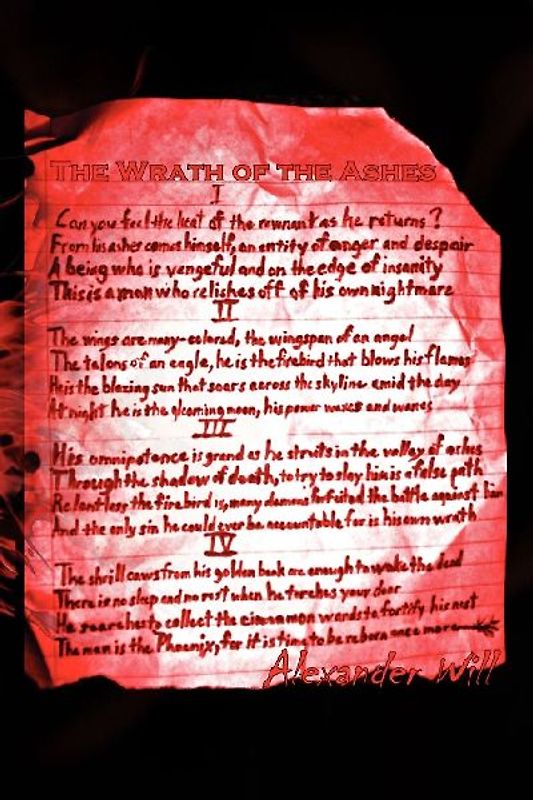 THE WRATH OF THE ASHES
I
Can you feel the heat of the remnant as he returns?
From his ashes comes himself, an entity of anger and despair
A being who is vengeful and on the edge of insanity
This is a man who relishes off of his own nightmare
II
The wings are many-colored, the wingspan of an angel
The talons of an eagle, he is the firebird that blows his flames
He is the blazing sun that soars across the skyline amid the day
At night he is the gleaming moon, his power waxes and wanes
III
His omnipotence is grand as he struts in the valley of ashes
Through the shadow of death, to try to slay him is a false path
Relentless the firebird is, many demons forfuited the battle against him
And the only sin he could ever be accountable for is his own wrath
IV
The shrill caws from his golden beak are enough to wake the dead
There is no sleep and no rest when he torches your door
He searches to collect the cinnamon wands to fortify his nest
The man is the Phoenix, for it is time to be reborn once more
Alexander Will